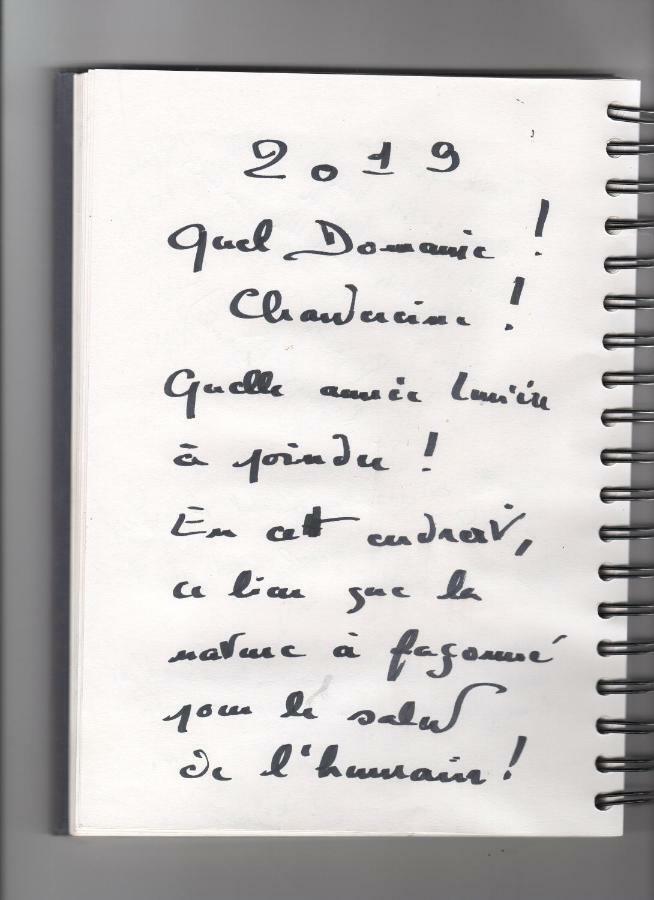 2019
Quel Domaine !
!
Quelle année lumière
à joindre !
En cet endroit,
ce lieu que la
nature à façonné
pour le salut
de l'humain !